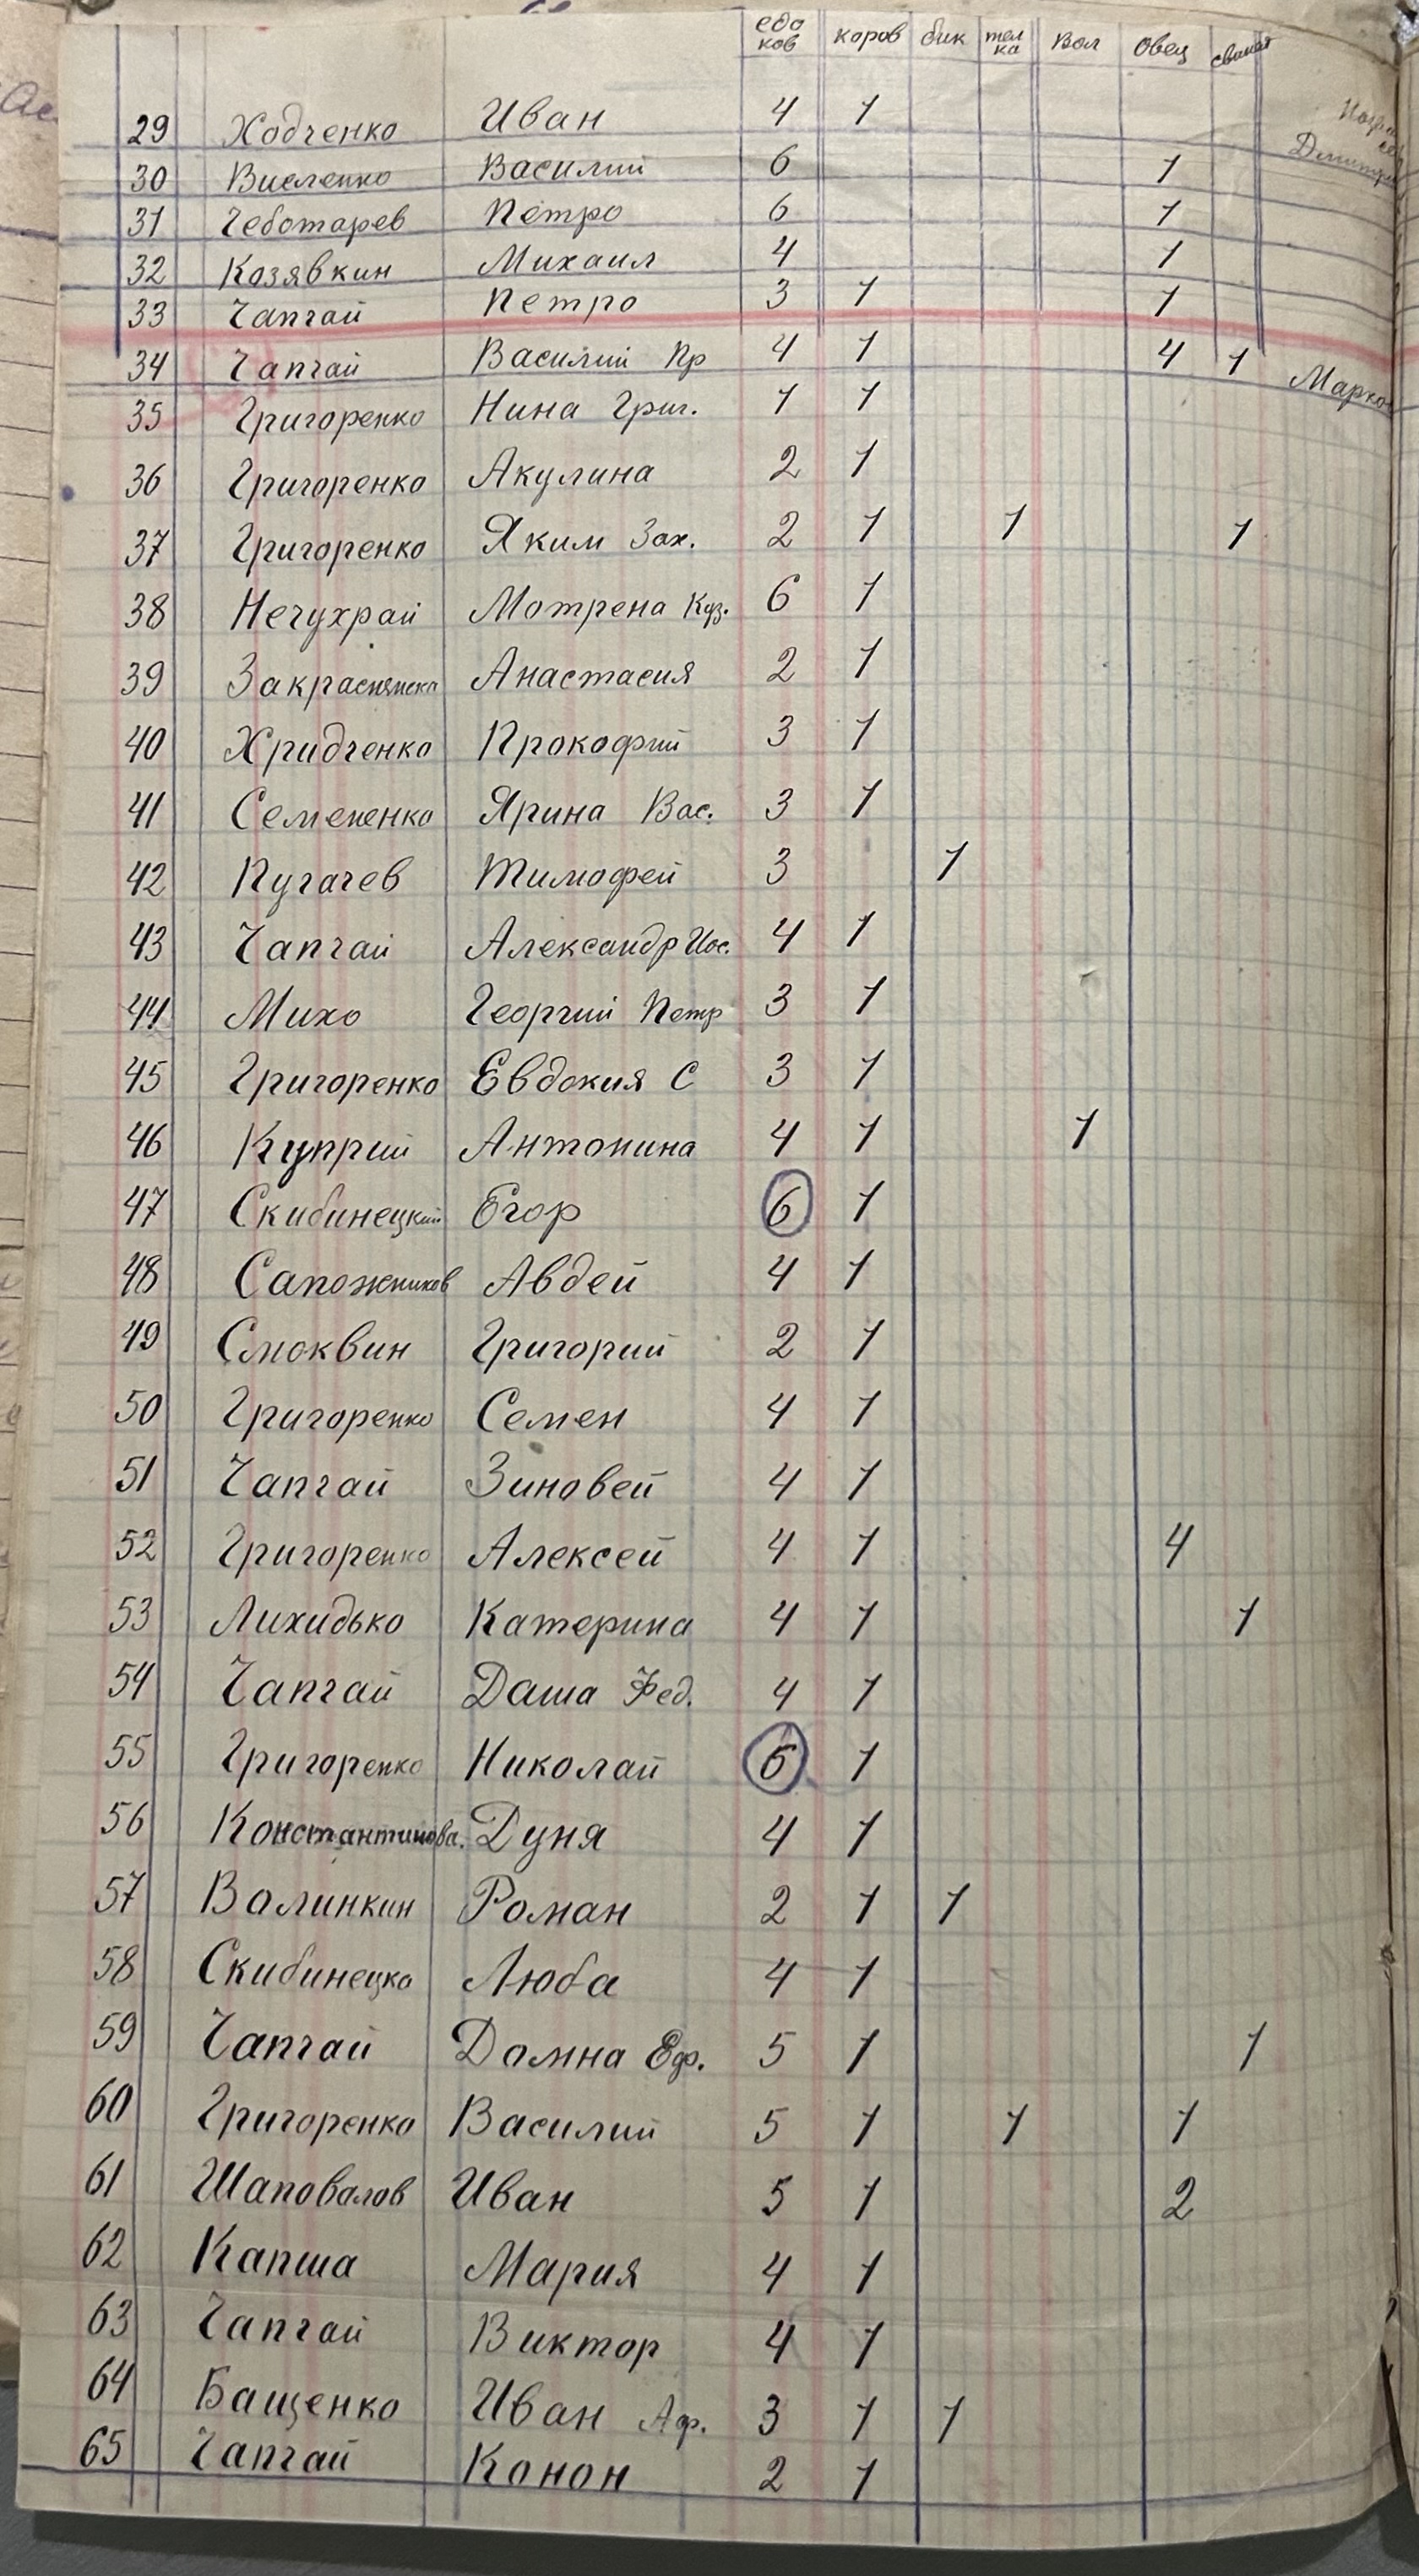 едоков коров бик телка вол овец свиней
29 Ходченко Иван 4 1
30 Висленко Василий 6 1
31 Чеботарев Петро 6 1
32 Козявкин Михаил 4 1
33 Чапчай Петро 3 1 1
34 Чапчай Василий Пр 4 1 4 1 Марко
35 Григоренко Нина Григ. 1 1
36 Григоренко Акулина 2 1
37 Григоренко Яким Зах. 2 1 1 1
38 Нечухрай Мотрена Куз. 6 1
39 Закраснянска Анастасия 2 1
40 Хридченко Прокофий 3 1
41 Семененко Ярина Вас. 3 1
42 Пугачев Тимофей 3 1
43 Чапчай Александр Иос. 4 1
44 Михо Георгий Петр 3 1
45 Григоренко Евдокия С 3 1
46 Куприй Антонина 4 1 1
47 Скибинецкий Егор 6 1
48 Сапожников Авдей 4 1
49 Смоквин Григорий 2 1
50 Григоренко Семен 4 1
51 Чапчай Зиновей 4 1
52 Григоренко Алексей 4 1 4
53 Лихидько Катерина 4 1 1
54 Чапчай Даша Фед. 4 1
55 Григоренко Николай 6 1
56 Константинова. Дуня 4 1
57 Валинкин Роман 2 1 1
58 Скибинецко Люба 4 1
59 Чапчай Домна Еф. 5 1 1
60 Григоренко Василий 5 1 1 1
61 Шаповалов Иван 5 1 2
62 Капша Мария 4 1
63 Чапчай Виктор 4 1
64 Бащенко Иван Аф. 3 1 1
65 Чапчай Конон 2 1